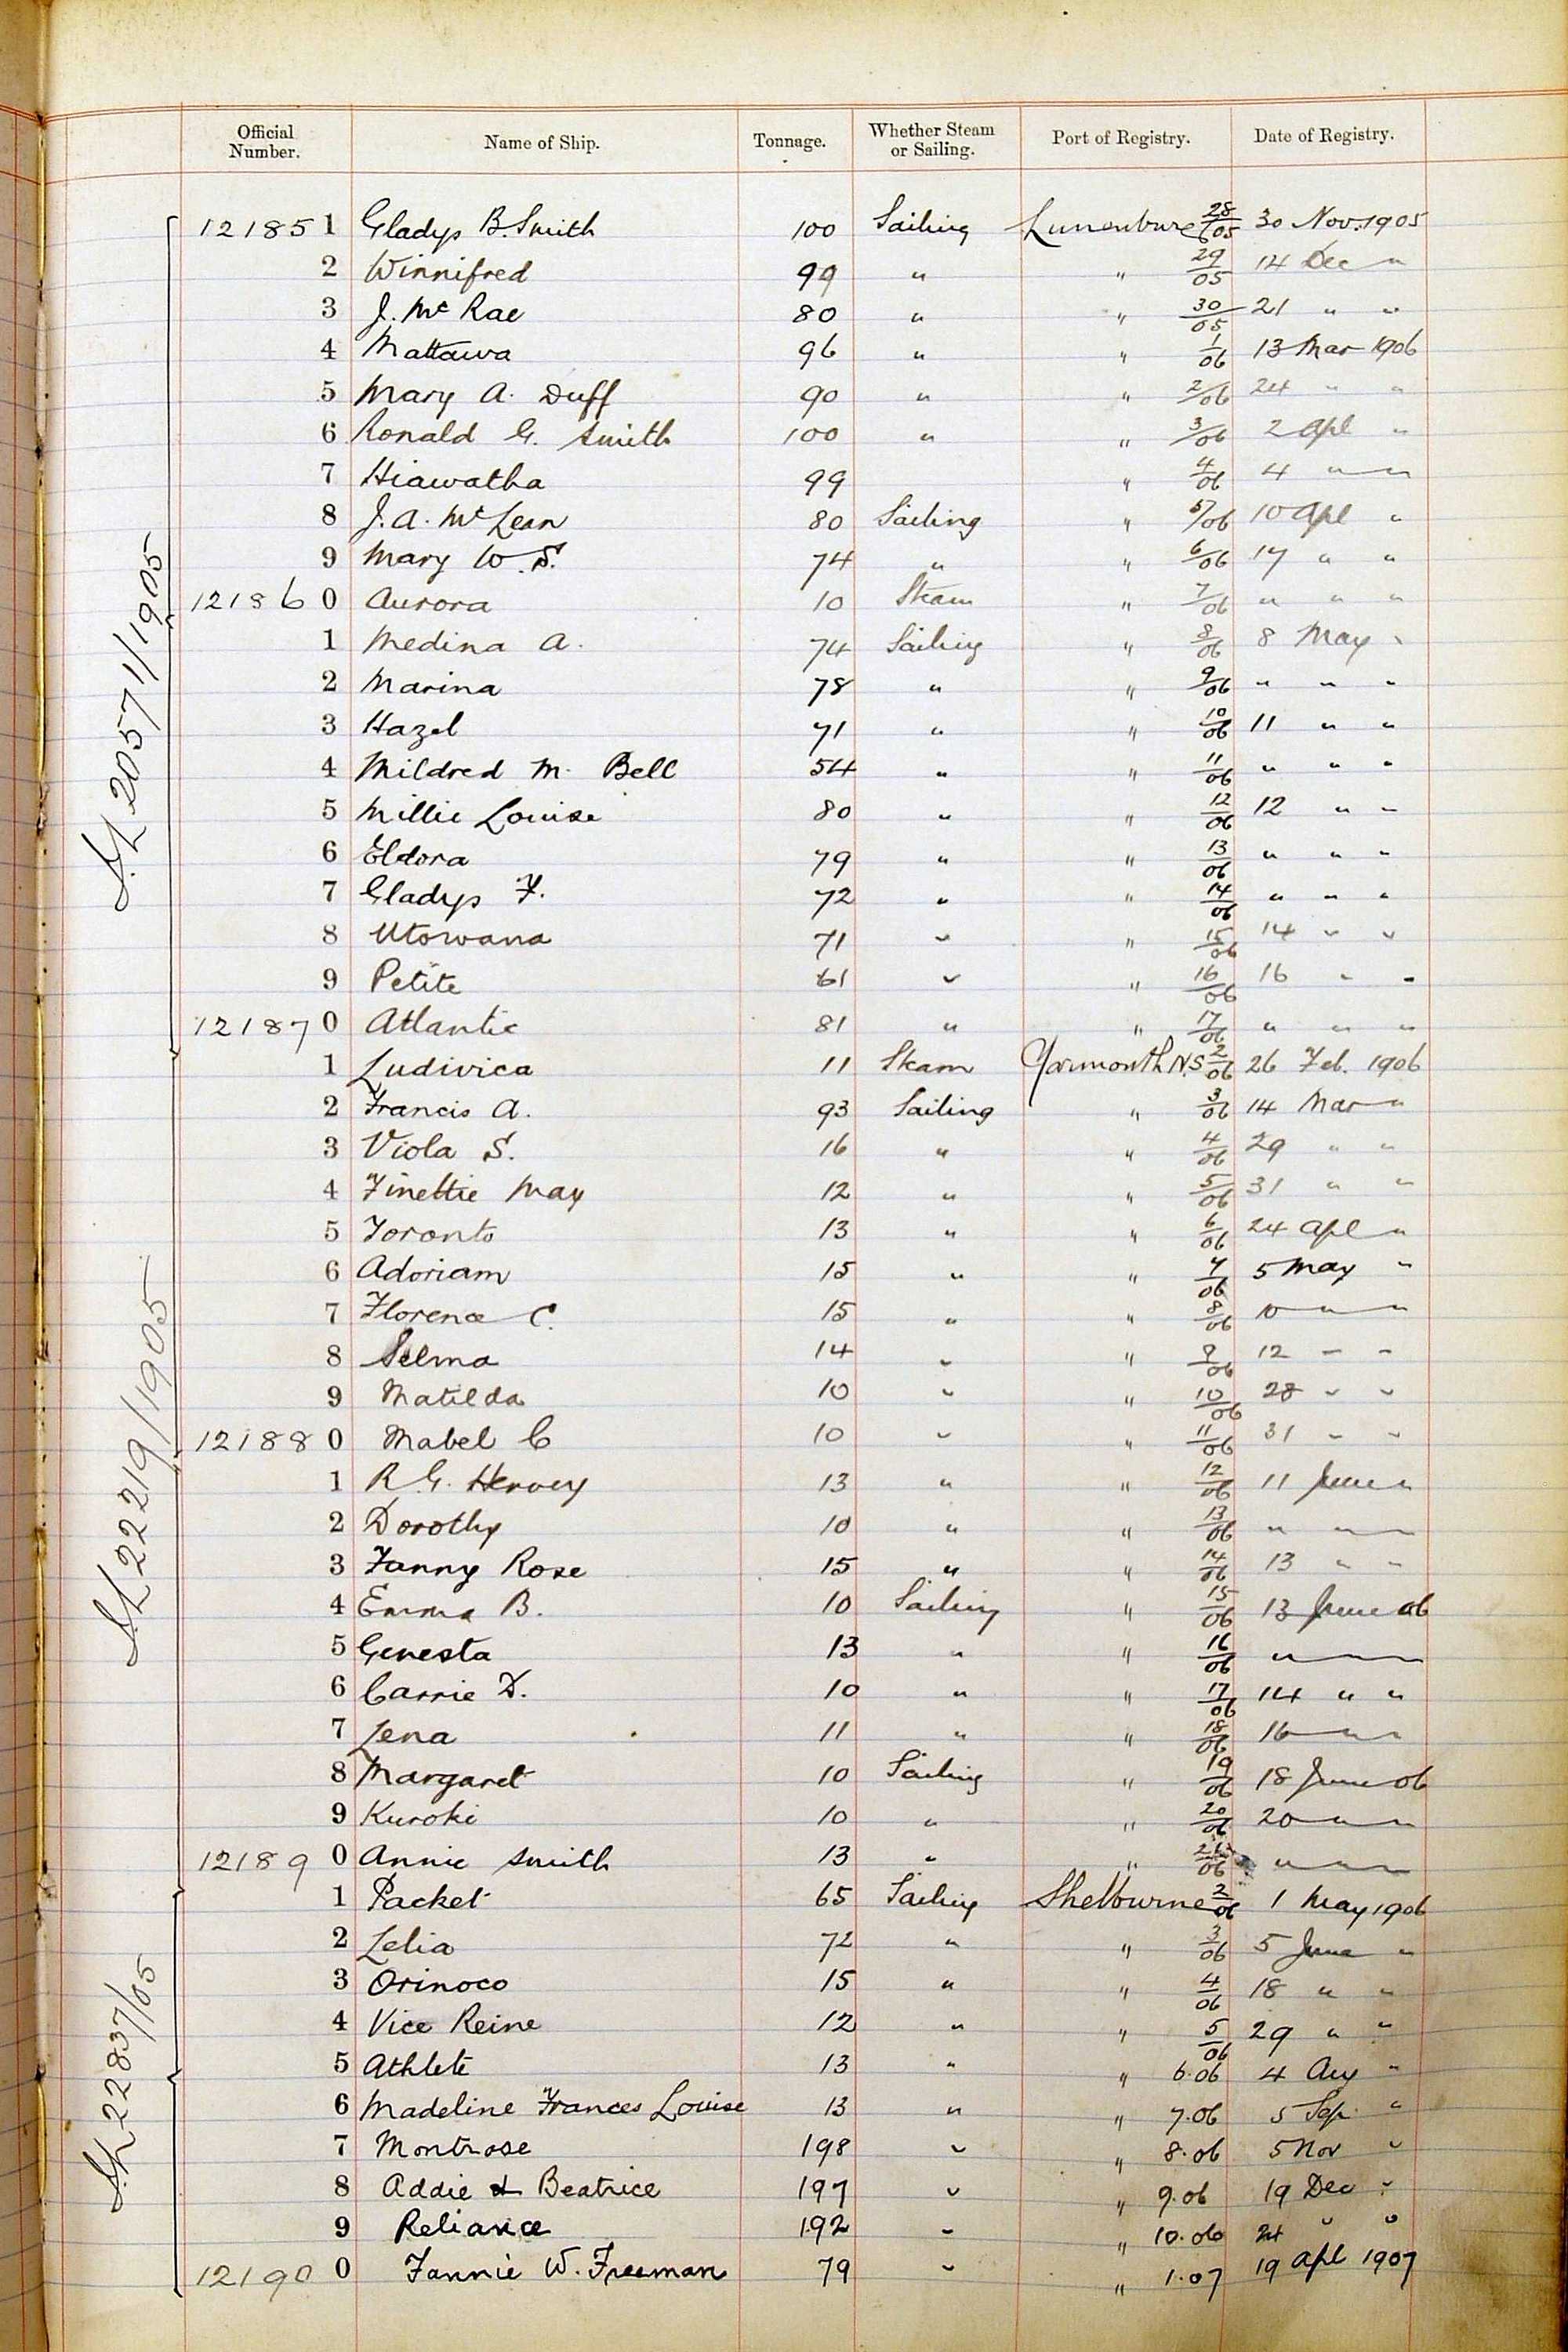 Official Number. Name of Ship. Tonnage. Whether Steam or Sailing. Port of Registry. Date of Registry.
12185 1 Gladys B. Smith 100 Sailing Lunenburg 28/05 30 Nov. 1905
2 Winnifred 99 " " 29/05 14 Dec "
3 J. McRae 80 " " 30/05 21 " "
4 Mattawa 96 " " 1/06 13 Mar 1906
5 Mary A. Duff 90 " " 2/06 24 " "
6 Ronald G. Smith 100 " " 3/06 2 Apl "
7 Hiawatha 99 " 4/06 4 " "
8 J. A. McLean 80 Sailing " 5/06 10 Apl "
9 Mary W. S. 74 " " 6/06 17 " "
12186 0 Aurora 10 Steam " 7/06 " " "
1 Medina A. 74 Sailing " 8/06 8 May "
2 Marina 78 " " 9/06 " " "
3 Hazel 71 " " 10/06 11 " "
4 Mildred M. Bell 54 " " 11/06 " " "
5 Millie Louise 80 " " 12/06 12 " "
6 Eldora 79 " " 13/06 " " "
7 Gladys F. 72 " " 14/06 " " "
8 Utowana 71 " " 15/06 14 " "
9 Petite 61 " " 16/06 16 " "
12187 0 Atlantic 81 " " 17/06 " " "
1 Ludivica 11 Steam Yarmouth N.S. 2/06 26 Feb. 1906
2 Francis A. 93 Sailing " 3/06 14 Mar "
3 Viola S. 16 " " 4/06 29 " "
4 Finettie May 12 " " 5/06 31 " "
5 Toronto 13 " " 6/06 24 Apl "
6 Adoriam 15 " " 7/06 5 May "
7 Florence C. 15 " " 8/06 10 " "
8 Selma 14 " " 9/06 12 " "
9 Matilda 10 " " 10/06 28 " "
12188 0 Mabel C 10 " " 11/06 31 " "
1 R. G. Hervey 13 " " 12/06 11 June "
2 Dorothy 10 " " 13/06 " " "
3 Fanny Rose 15 " " 14/06 13 " "
4 Emma B. 10 Sailing " 15/06 13 June 06
5 Genesta 13 " " 16/06 " " "
6 Carrie D. 10 " " 17/06 14 " "
7 Lena 11 " " 18/06 16 " "
8 Margaret 10 Sailing " 19/06 18 June 06
9 Kuroki 10 " " 20/06 20 " "
12189 0 Annie Smith 13 " " 21/06 " " "
1 Packet 65 Sailing Shelburne 2/06 1 May 1906
2 Lelia 72 " " 3/06 5 June "
3 Orinoco 15 " " 4/06 18 " "
4 Vice Reine 12 " " 5/06 29 " "
5 Athlete 13 " " 6.06 4 Aug "
6 Madeline Frances Louise 13 " " 7.06 5 Sep. "
7 Montrose 198 " " 8.06 5 Nov "
8 Addie & Beatrice 197 " " 9.06 19 Dec "
9 Reliance 192 " " 10.06 24 " "
12190 0 Fannie W. Freeman 79 " " 1.07 19 Apl 1907
20571/1905
22219/1905
22837/05